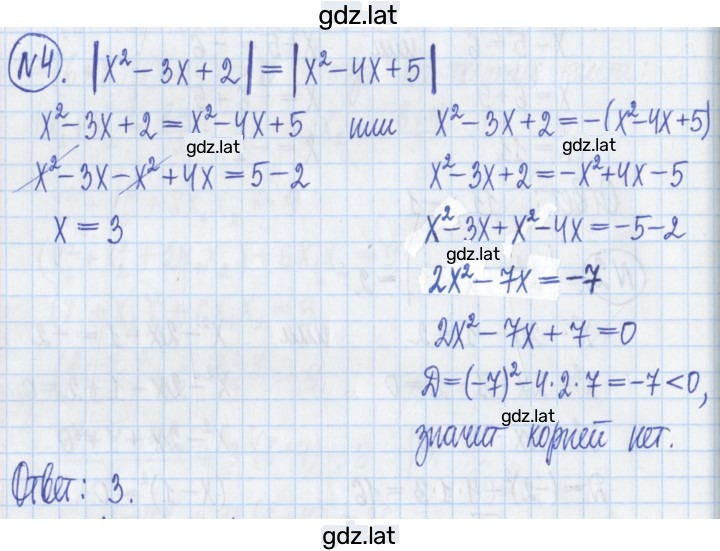 gdz.lat
№4. |x² − 3x + 2| = |x² − 4x + 5|
x² − 3x + 2 = x² − 4x + 5 или x² − 3x + 2 = −(x² − 4x + 5)
gdz.lat gdz.lat
x² − 3x − x² + 4x = 5 − 2 x² − 3x + 2 = −x² + 4x − 5
x = 3 x² − 3x + x² − 4x = −5 − 2
gdz.lat
2x² − 7x = −7
2x² − 7x + 7 = 0
Д = (−7)² − 4·2·7 = −7 < 0,
gdz.lat
значит корней нет.
Ответ: 3.
gdz.lat